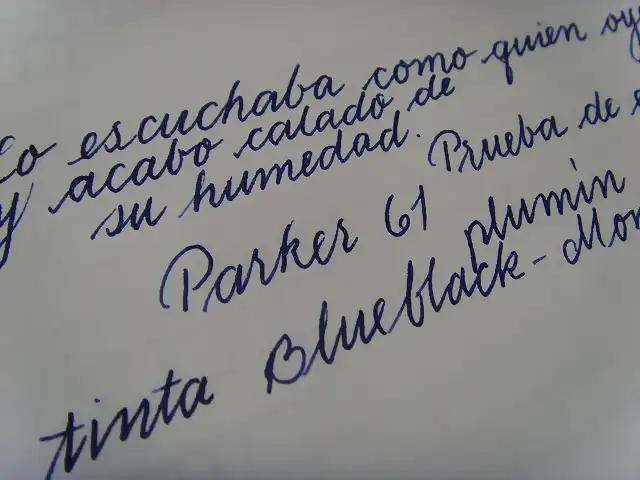 Lo escuchaba como quien oy
y acabo calado de
su humedad. Prueba de e
Parker 61 plumín
tinta Blueblack-Mon